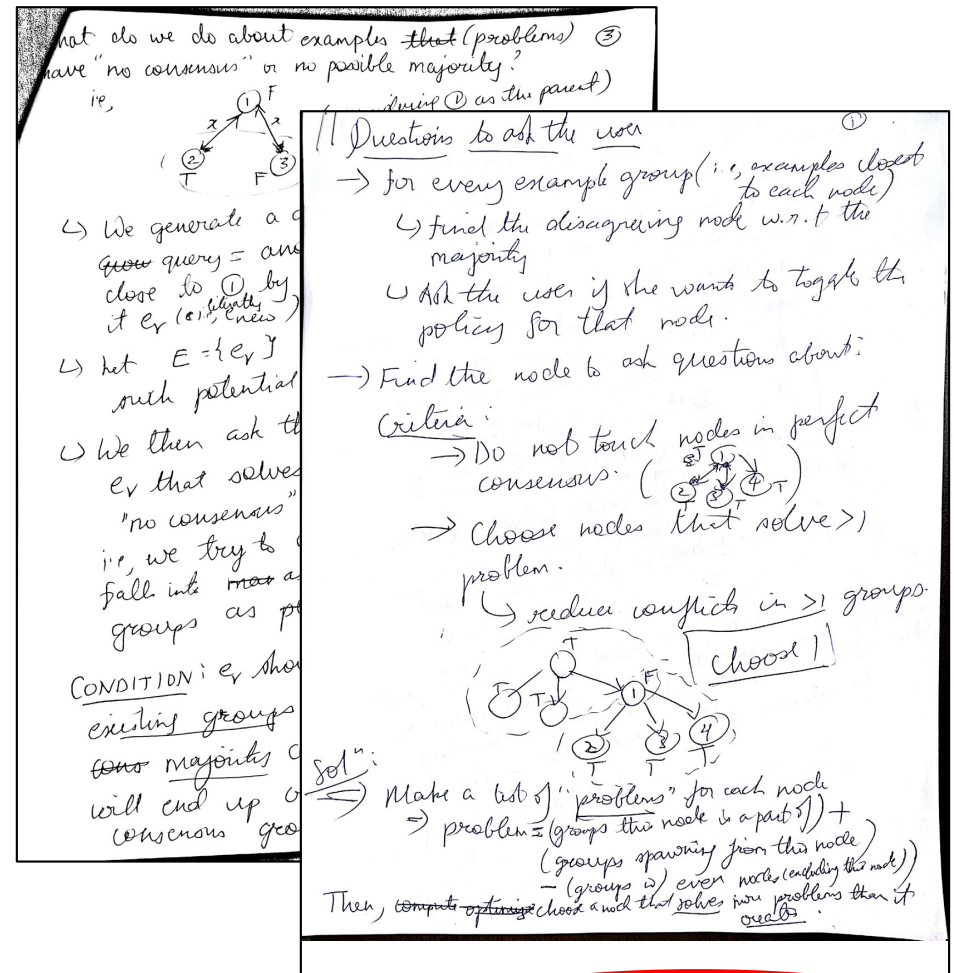 hat do we do about examples that (problems) ③
have "no consensus" or no possible majority?
i.e,
① F
as the parent)
x x
② T
F ③
↳ We generate a
query = ano
close to ① by
it eᵥ (
↳ Let E = {eᵥ}
such potential
↳ We then ask th
eᵥ that solves
"no consensus"
i.e, we try to
fall into as
groups as
CONDITION: eᵥ sho
existing groups
majority
will end up
consensus gro
①
Questions to ask the user
→ for every example group (i.e, examples closest
to each node)
↳ find the disagreeing node w.r.t the
majority
↳ Ask the user if she wants to toggle the
policy for that node.
→ Find the node to ask questions about:
Criteria:
→ Do not touch nodes in perfect
consensus. ( T ① ② T ③ T ④ T )
→ Choose nodes that solve >1
problem.
↳ reduce conflicts in >1 groups.
T
choose 1
T T ① F
② ③ ④
T T T
Solⁿ:
⇒ Make a list of "problems" for each node
⇒ problem = (groups this node is a part of) +
(groups spawning from this node)
- (groups w) even nodes (excluding this node))
Then, compute optimize choose a node that solves more problems than it
creates.